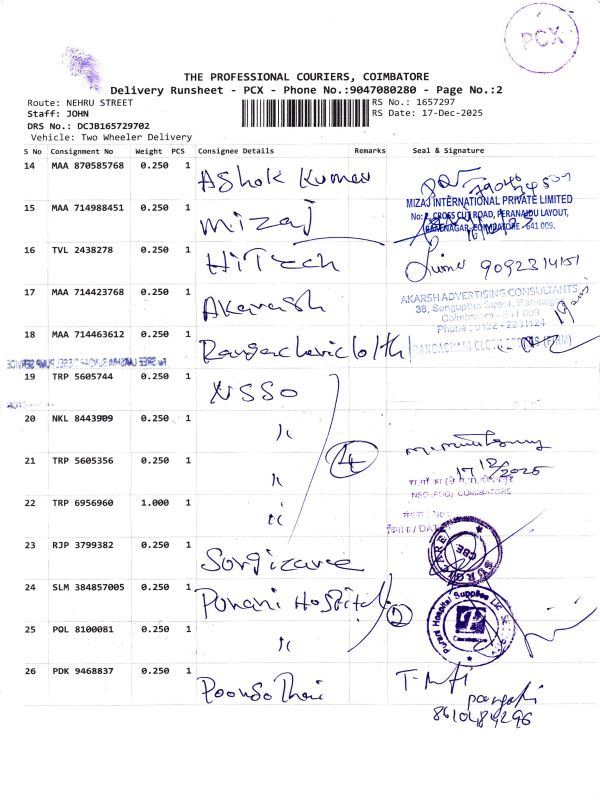 PCX
THE PROFESSIONAL COURIERS, COIMBATORE
Delivery Runsheet - PCX - Phone No.:9047080280 - Page No.:2
Route: NEHRU STREET
RS No.: 1657297
Staff: JOHN
RS Date: 17-Dec-2025
DRS No.: DCJB165729702
Vehicle: Two Wheeler Delivery
S No Consignment No Weight PCS Consignee Details Remarks Seal & Signature
14 MAA 870585768 0.250 1 Ashok Kumar
15 MAA 714988451 0.250 1 Mizaj
MIZAJ INTERNATIONAL PRIVATE LIMITED
No: 2, CROSS CUT ROAD, PERANAIDU LAYOUT,
RAMNAGAR, COIMBATORE - 641 009.
16 TVL 2438278 0.250 1 HiTech 9092314151
17 MAA 714423768 0.250 1 Akarash
AKARSH ADVERTISING CONSULTANTS
38, Senguptha Street, Ramnagar
Coimbatore - 641 009
Phone : 0422 - 2231124
18 MAA 714463612 0.250 1
19 TRP 5605744 0.250 1 NSSO
20 NKL 8443909 0.250 1 "
21 TRP 5605356 0.250 1 " 4
17/12/2025
COIMBATORE
22 TRP 6956960 1.000 1 "
/ DATE
23 RJP 3799382 0.250 1 Surgizare
SURGICARE
CBE
24 SLM 384857005 0.250 1 Purani Hospital 2
Purani Hospital Supplies
25 POL 8100081 0.250 1 "
26 PDK 9468837 0.250 1